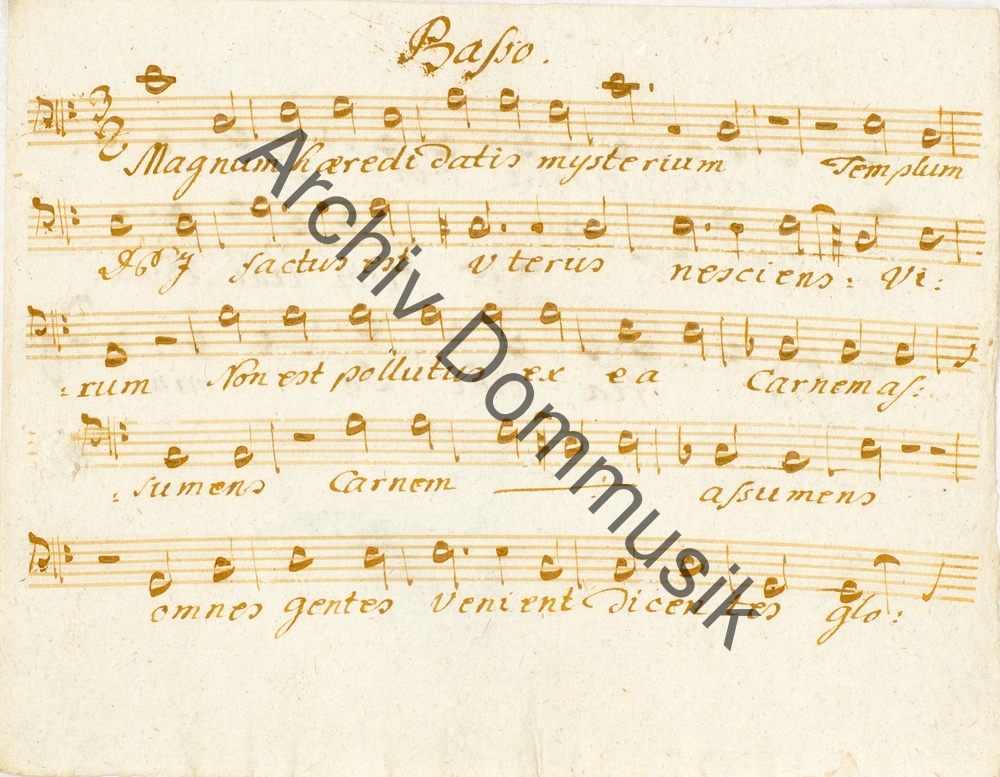 Basso.
Magnum hæredi datis mysterium Templum
factus est uterus nesciens: Vi:
:rum Non est pollutus ex ea Carnem as:
:sumens Carnem assumens
omnes gentes venient dicentes glo:
Archiv Dommusik